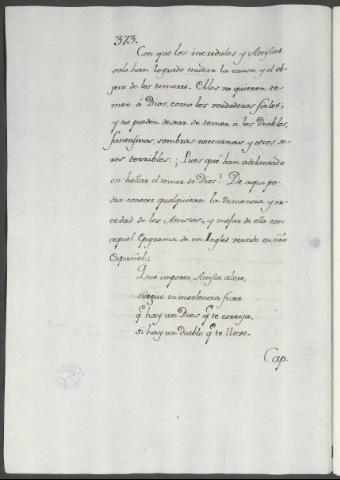 373.
Con que los incredulos y Ateistas
solo han logrado mudar la causa y el ob-
jeto de los temores. Ellos no quieren te-
mer a Dios, como los verdaderos fieles;
y no pueden dexar de temer à los diablos,
fantasmas, sombras nocturnas y otros se-
res terribles. ¿Pues qué han adelantado
en hollar el temor de Dios? De aqui po-
drà conocer qualquiera la demencia y ne-
cedad de los Ateistas, y mofar de ella con
aquel Epigrama de un Ingles vertido en nro
Español:
Que importa, Ateista aleve,
niegue tu insolencia fiera
q.e hay un Dios q.e te corrija,
si hay un diablo q.e te lleve.
Cap.